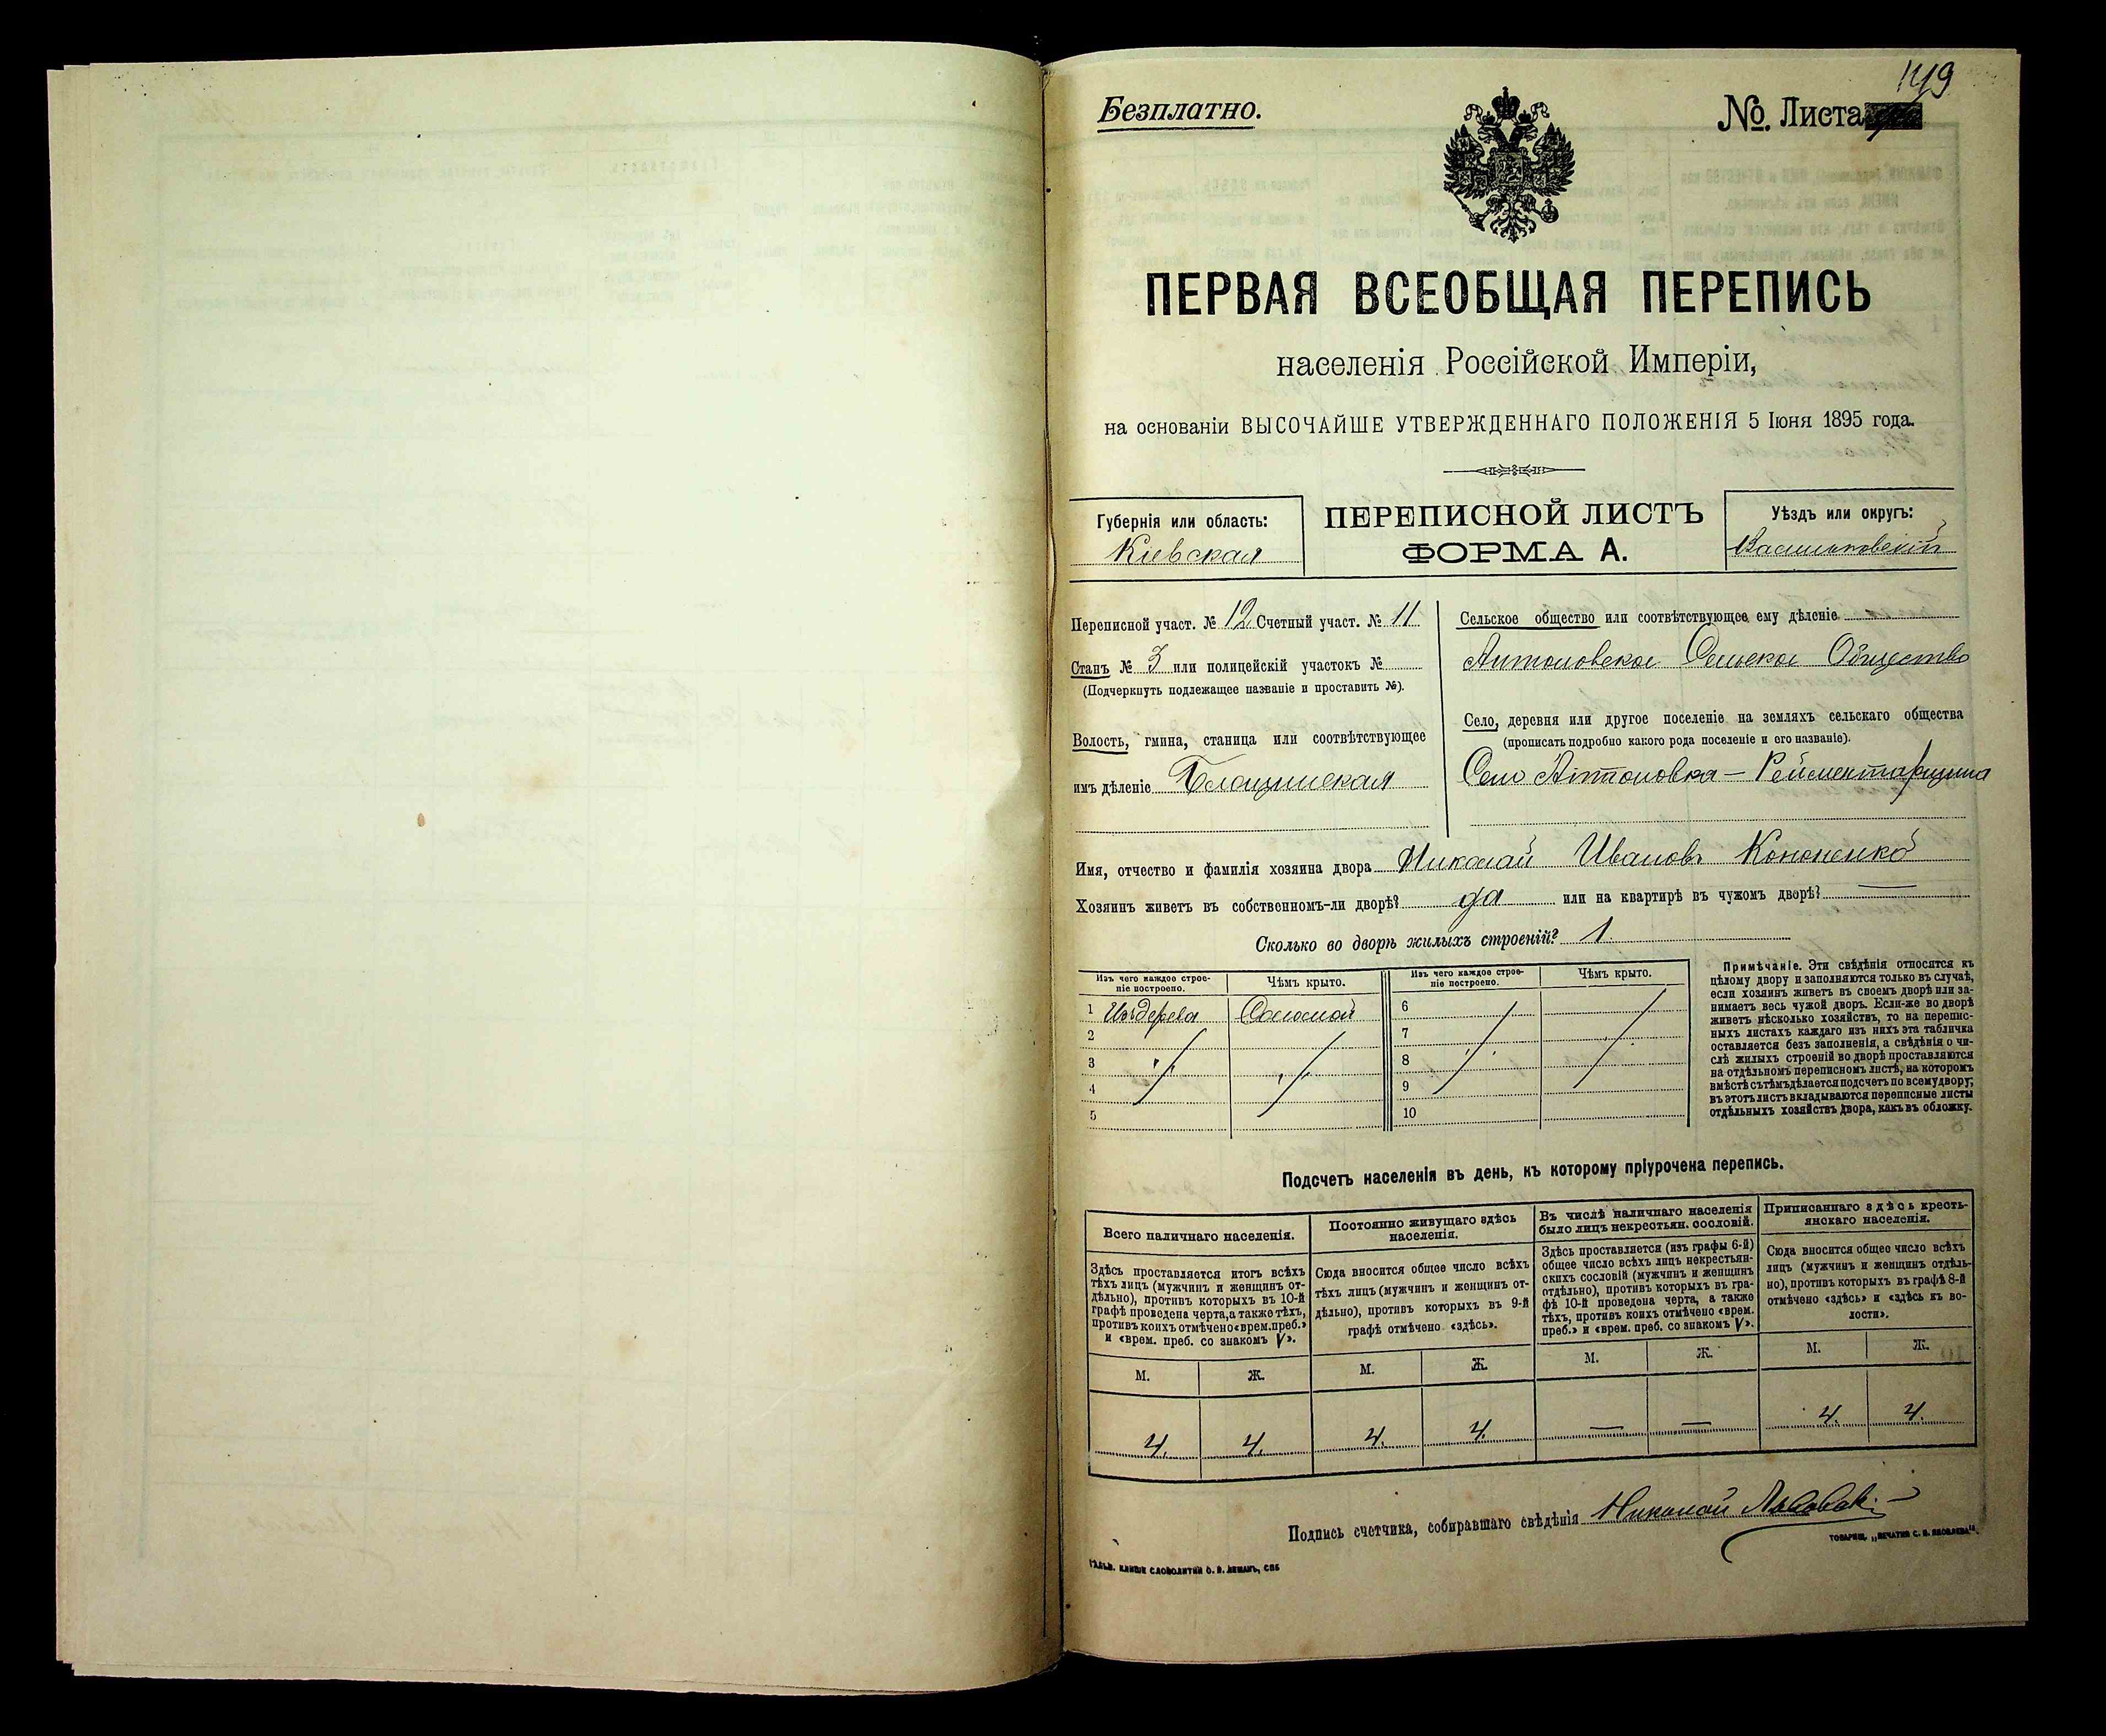 149
Безплатно.
№. Листа
ПЕРВАЯ ВСЕОБЩАЯ ПЕРЕПИСЬ
населенія Россійской Имперіи,
на основаніи ВЫСОЧАЙШЕ УТВЕРЖДЕННАГО ПОЛОЖЕНІЯ 5 Іюня 1895 года.
Губернія или область:
Кіевская
ПЕРЕПИСНОЙ ЛИСТЪ
ФОРМА А.
Уѣздъ или округъ:
Васильковскій
Переписной участ. № 12 Счетный участ. № 11
Станъ № 3 или полицейскій участокъ №
(Подчеркнуть подлежащее названіе и проставить №).
Волость, гмина, станица или соотвѣтствующее
имъ дѣленіе Блощинская
Сельское общество или соотвѣтствующее ему дѣленіе
Антоновское Сельское Общество
Село, деревня или другое поселеніе на земляхъ сельскаго общества
(прописать подробно какого рода поселеніе и его названіе).
Село Антоновка — Рейментарщина
Имя, отчество и фамилія хозяина двора Николай Ивановъ Кононенко
Хозяинъ живетъ въ собственномъ-ли дворѣ? да или на квартирѣ въ чужомъ дворѣ? —
Сколько во дворѣ жилыхъ строеній? 1.
Изъ чего каждое строе-
ніе построено.
Чѣмъ крыто.
Изъ чего каждое строе-
ніе построено.
Чѣмъ крыто.
1 Изъ дерева Соломой 6
2 7
3 8
4 9
5 10
Примѣчаніе. Эти свѣдѣнія относятся къ
цѣлому двору и заполняются только въ случаѣ,
если хозяинъ живетъ въ своемъ дворѣ или за-
нимаетъ весь чужой дворъ. Если-же во дворѣ
живетъ нѣсколько хозяйствъ, то на перепис-
ныхъ листахъ каждаго изъ нихъ эта табличка
оставляется безъ заполненія, а свѣдѣнія о чи-
слѣ жилыхъ строеній во дворѣ проставляются
на отдѣльномъ переписномъ листѣ, на которомъ
вмѣстѣ съ тѣмъ дѣлается подсчетъ по всему двору;
въ этотъ листъ вкладываются переписные листы
отдѣльныхъ хозяйствъ двора, какъ въ обложку.
Подсчетъ населенія въ день, къ которому пріурочена перепись.
Всего наличнаго населенія.
Здѣсь проставляется итогъ всѣхъ
тѣхъ лицъ (мужчинъ и женщинъ от-
дѣльно), противъ которыхъ въ 10-й
графѣ проведена черта, а также тѣхъ,
противъ коихъ отмѣчено «врем. преб.»
и «врем. преб. со знакомъ V».
Постоянно живущаго здѣсь
населенія.
Сюда вносится общее число всѣхъ
тѣхъ лицъ (мужчинъ и женщинъ от-
дѣльно), противъ которыхъ въ 9-й
графѣ отмѣчено «здѣсь».
Въ числѣ наличнаго населенія
было лицъ некрестьян. сословій.
Здѣсь проставляется (изъ графы 6-й)
общее число всѣхъ лицъ некрестьян-
скихъ сословій (мужчинъ и женщинъ
отдѣльно), противъ которыхъ въ гра-
фѣ 10-й проведена черта, а также
тѣхъ, противъ коихъ отмѣчено «врем.
преб.» и «врем. преб. со знакомъ V».
Приписаннаго здѣсь кресть-
янскаго населенія.
Сюда вносится общее число всѣхъ
лицъ (мужчинъ и женщинъ отдѣль-
но), противъ которыхъ въ графѣ 8-й
отмѣчено «здѣсь» и «здѣсь къ во-
лости».
М. Ж. М. Ж. М. Ж. М. Ж.
4. 4. 4. 4. — — 4. 4.
Подпись счетчика, собиравшаго свѣдѣнія Николай
ТОВАРИЩ. „ПЕЧАТНЯ С. П. ЯКОВЛЕВА“.
ГАЛЬВ. КЛИШЕ СЛОВОЛИТНИ О. И. ЛЕМАНЪ, СПБ